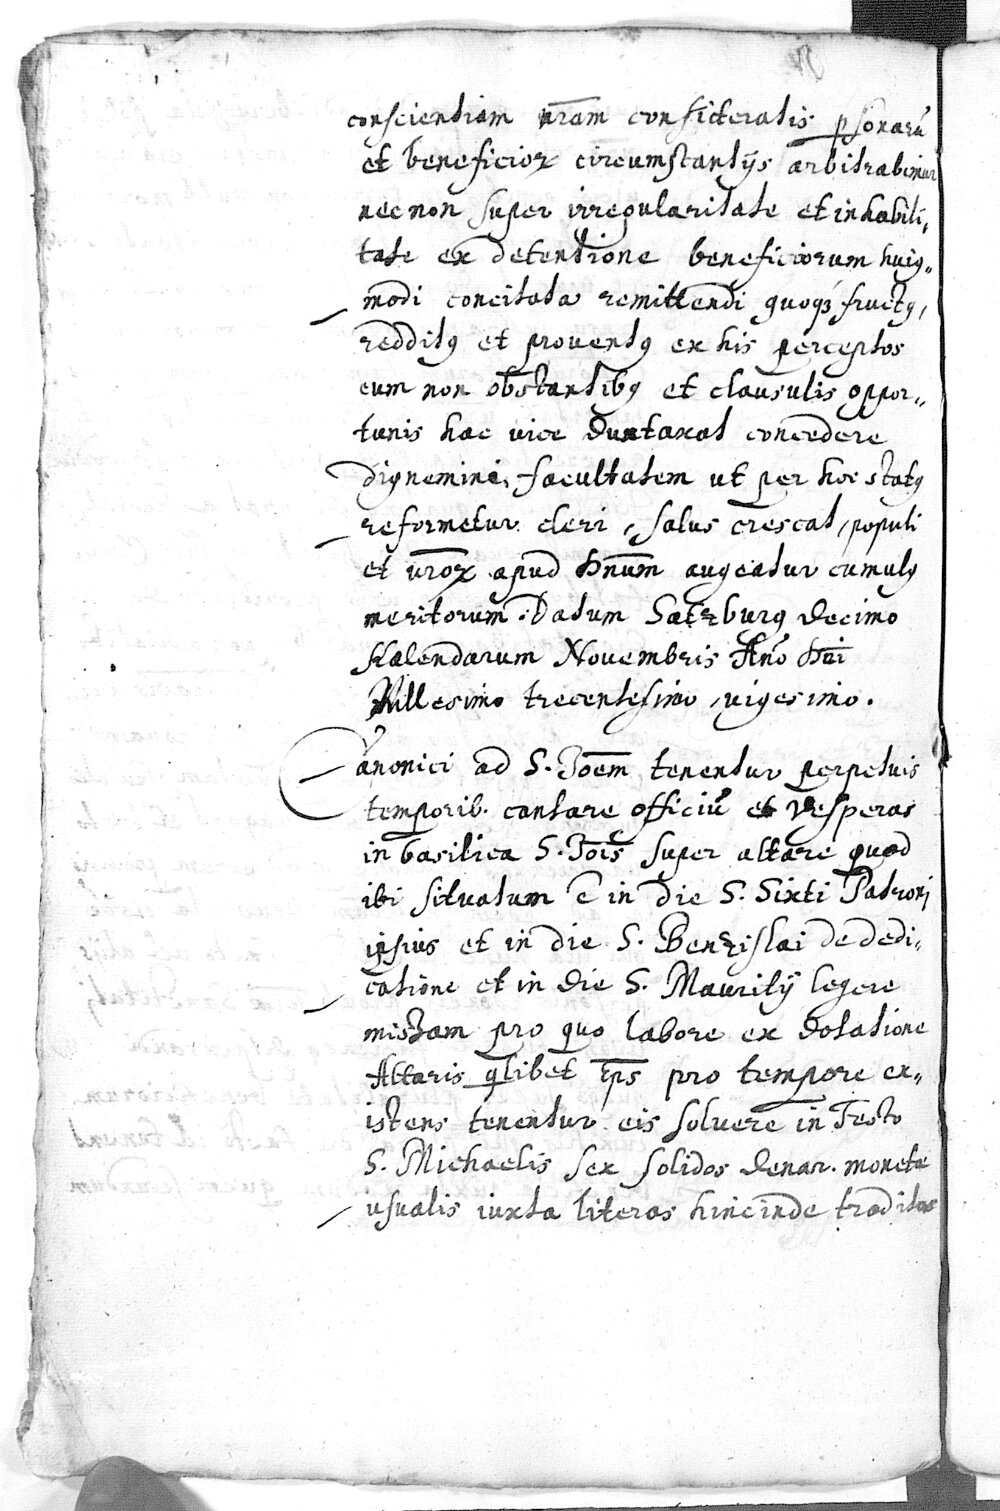 conscientiam nr̄am consideratis p̱sonarū
et beneficioꝝ circumstantijs arbitrabimur
nec non super irregularitate et inhabili„
tate ex detentione beneficiorum huiꝯ„
modi concitata remittendi quoqꝫ fructꝯ,
redditꝯ et proventꝯ ex his perceptos
cum non obstantibꝯ et clausulis oppor„
tunis hac vice duntaxat concedere
dignemini facultatem ut per hoc statꝯ
reformetur cleri, salus crescat, populi
et vr̄oꝝ apud Dn̄um augeatur cumulꝯ
meritorum. Datum Satzburg decimo
Kalendarum Novembris Año Dn̄i
Millesimo trecentesimo, vigesimo.
Canonici ad S. Joēm tenentur perpetuis
temporib. cantare officiū et Vesperas
in basilica S. Jōis super altare quod
ibi situatum ē in die S. Sixti Patroni
ipsius et in die S. Benzislai de dedi„
catione et in die S. Mauritij legere
missam pro quo labore ex dotatione
Altaris q̱libet Ep̄s pro tempore ex„
istens tenentur eis solvere in Festo
S. Michaelis sex solidos denar. moneta
usualis iuxta literas hincinde traditas